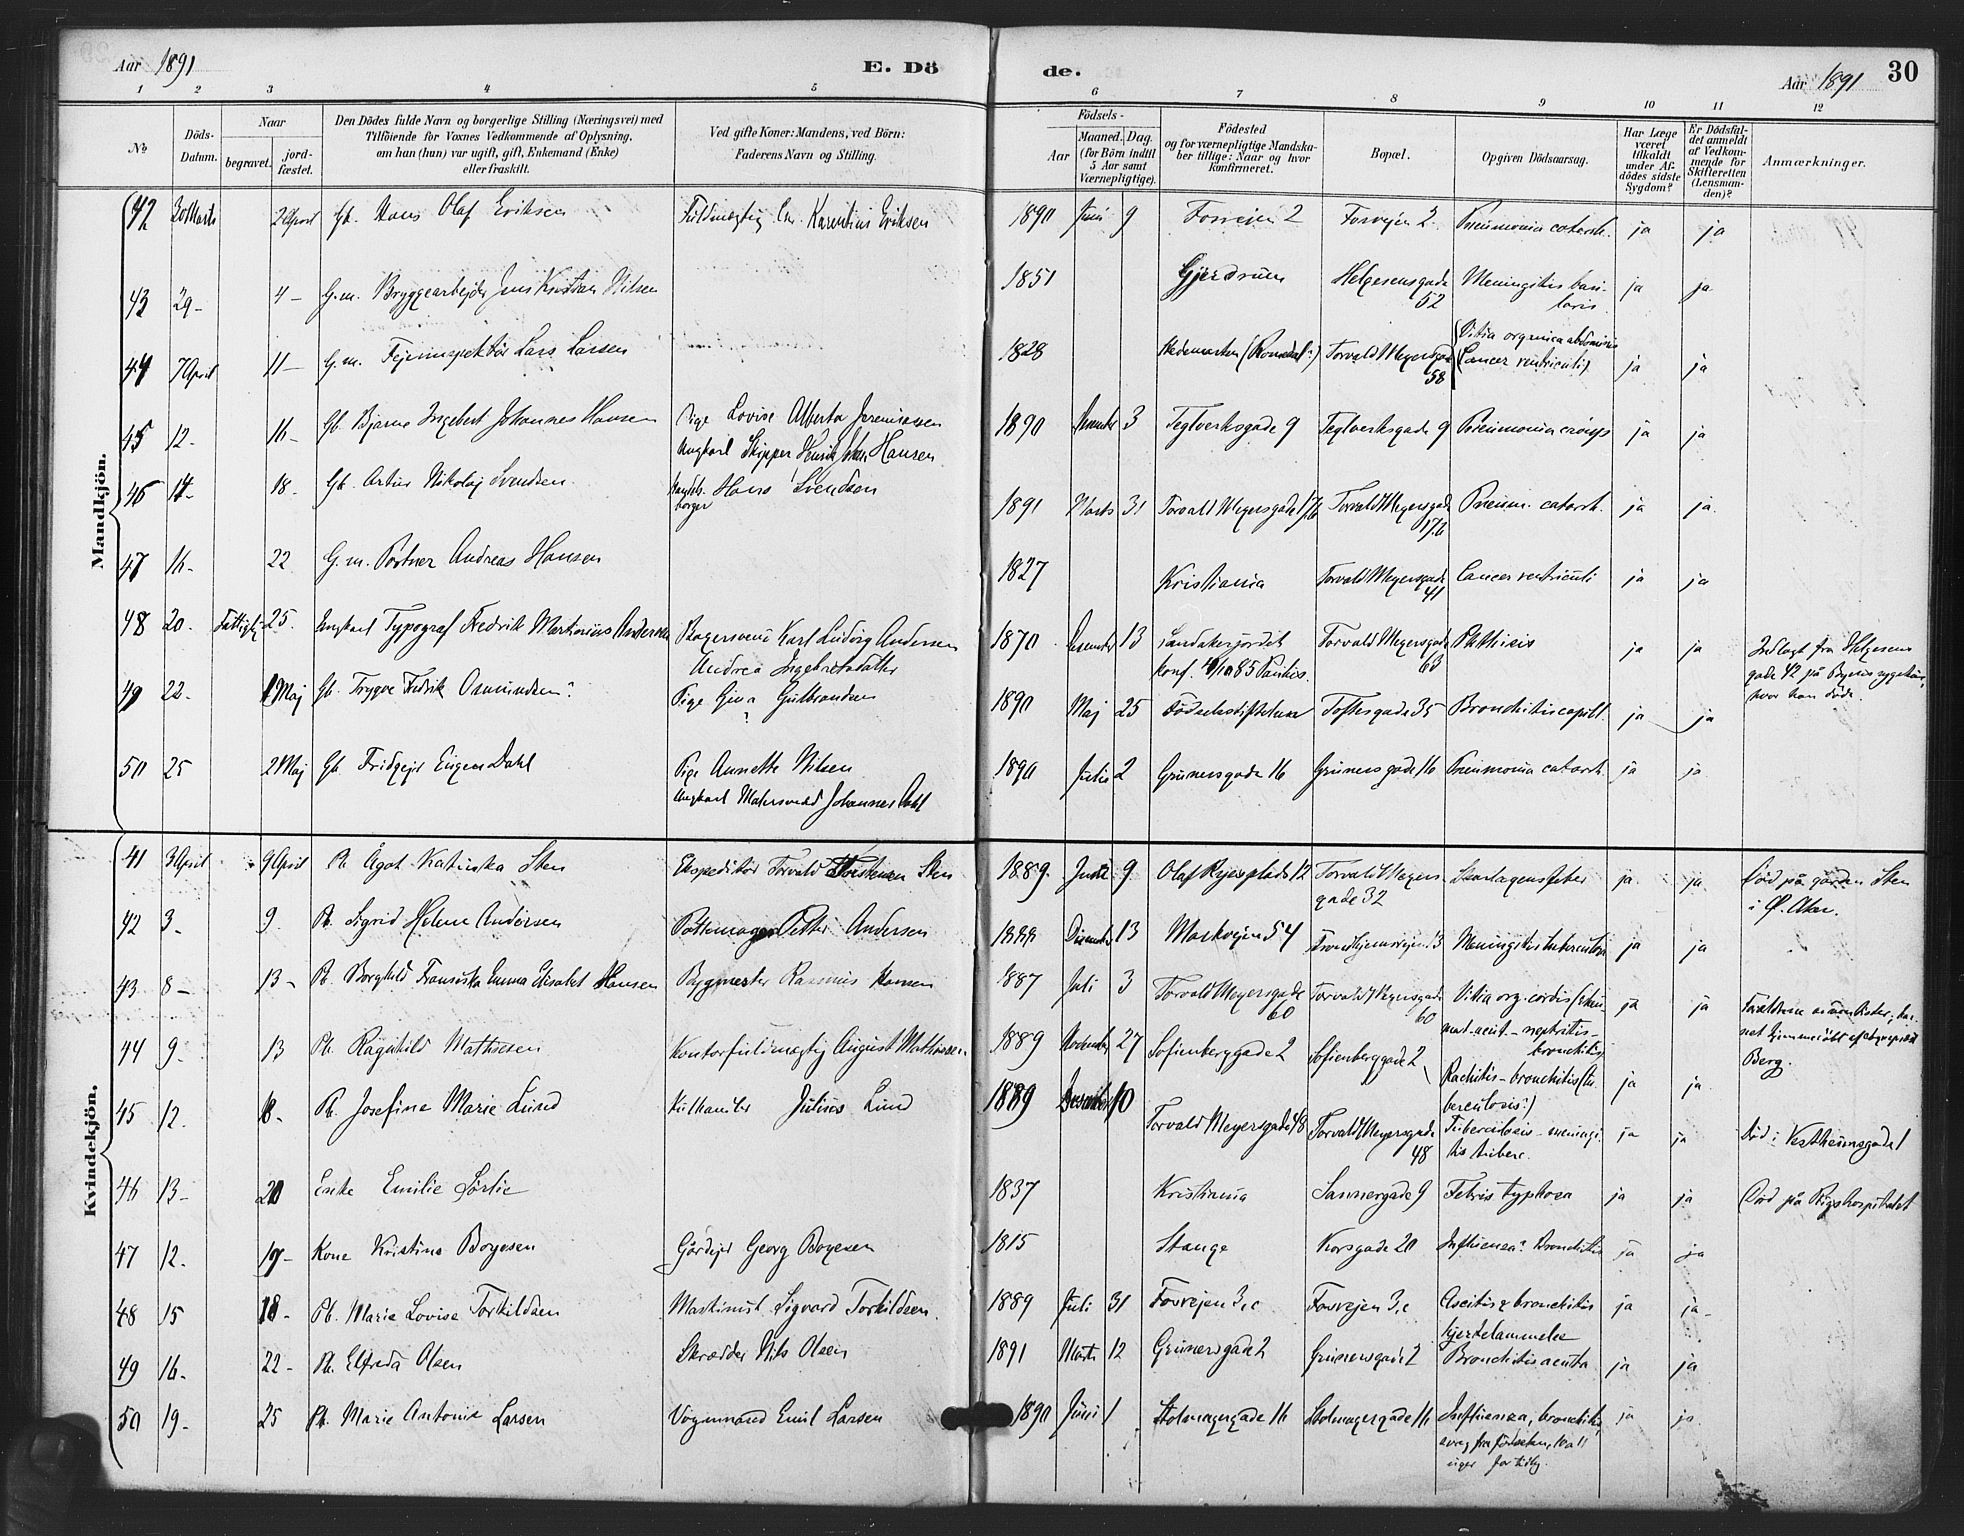 Aar 1891
E. Dö
de.
Aar 1891
30
1 2 3 4 5 6 7 8 9 10 11 12
№
Döds-Datum.
Naar
begravet.
jord-fæstet.
Den Dödes fulde Navn og borgerlige Stilling (Næringsvei) med
Tilföiende for Voxnes Vedkommende af Oplysning,
om han (hun) var ugift, gift, Enkemand (Enke)
eller fraskilt.
Ved gifte Koner: Mandens, ved Börn:
Faderens Navn og Stilling.
Födsels-
Aar
Maaned. Dag.
(for Börn indtil
5 Aar samt
Værnepligtige).
Födested
og for værnepligtige Mandska-
ber tillige: Naar og hvor
konfirmeret.
Bopæl.
Opgiven Dödsaarsag.
Har Læge
været
tilkaldt
under Af-
dödes sidste
Sygdom?
Er Dödsfal-
det anmeldt
af Vedkom-
mende for
Skifteretten
(Lensman-
den)?
Anmærkninger.
Mandkjön.
42 30 Marts 2 April Gb. Hans Olaf Eriksen Fuldmægtig Karentius Eriksen 1890 Juni 9 Fosvejen 2 Fosvejen 2. Pneumonia catarrh. ja ja
43 29- 4- G.m. Bryggearbejder Jens Kristian Nilsen 1851 Gjerdrum Helgesensgade 52 Meningitis basi-
laris ja ja
44 7 April 11- G.m. Fejerinspektör Lars Larsen 1828 Hedemarken (Romedal?) Torvald Meyersgade 58 Vitia organica abdominis
(Cancer ventriculi) ja ja
45 12- 16- Gb. Bjarne Ingebert Johannes Hansen Pige Lovise Alberta Jeremiassen
Ungkarl Skipper Henrik Johan Hansen 1890 Desember 3 Teglverksgade 9 Teglverksgade 9 Pneumonia croup. ja ja
46 14- 18- Gb. Artur Nikolaj Svendsen Handels-
borger Hans Svendsen 1891 Marts 31 Torvald Meyersgade 17b Torvald Meyersgade 17b Pneum. catarrh. ja ja
47 16- 22 G.m. Portner Andreas Hansen 1827 Kristiania Torvald Meyersgade 41 Cancer ventriculi ja ja
48 20- Fattigbg. 25- Ungkarl Typograf Fredrik Martinius Andersen Bagersvend Karl Ludvig Andersen
Andrea Ingebretsdatter 1870 Desember 13 Sandakerjordet
Konf. 4/10 85 Paulus. Torvald Meyersgade 63 Phthisis ja ja Indlagt fra Helgesens
gade 42 på Byens sygehus,
hvor han döde.
49 22- 1 Maj Gb. Trygve Fredrik Osmundsen? Pige Gina Gulbrandsen
? 1890 Maj 25 Födselsstiftelsen Toftesgade 35 Bronchitis capill. ja ja
50 25 2 Maj Gb. Fridtjof Eugen Dahl Pige Annette Nilsen
Ungkarl Malersvend Johannes Dahl 1890 Julis 2 Grünersgade 16 Grünersgade 16 Pneumonia catarrh. ja ja
Kvindekjön.
41 3 April 9 April Pb. Ågot Katinka Sten Ekspeditör Torvald Torstensen Sten 1889. Juni 9 Olaf Ryesplads 12 Torvald Meyers
gade 32 Skarlagensfeber ja ja Död på gården Sten
i Ø. Aker.
42 3- 9. Pb. Sigrid Helene Andersen Pottemager Petter Andersen 1888 Desember 13 Markvejen 54 Trondhjemsvejen 13 Meningitis tuberculosa ja ja
43 8- 13- Pb. Borghild Fransiska Emma Elisabet Hansen Bygmester Rasmus Hansen 1887 Juli 3 Torvald Meyersgade 60 Torvald Meyersgade 60 Vitia org. cordis (rheu-
mat. acut- nephritis-
bronchitis ja ja
Berg.
44 9- 13 Pb. Ragnhild Mathisen Kontorfuldmægtig August Mathisen 1889 November 27 Sofienberggade 2 Sofienberggade 2 Rachitis- bronchitis (tu-
berculosis?) ja ja
45 12- 18- Pb. Josefine Marie Lund Kulhandler Julius Lund 1889 Desember 10 Torvald Meyersgade 48 Torvald Meyersgade 48 Tuberculosis- meningi-
tis tuberc. ja ja Död i Vestheimsgade 1
46 13- 20 Enke Emilie Sörlie 1837 Kristiania Sannergade 9 Febris typhosa ja ja Död på Rigshospitalet
47 12- 19- Kone Kristine Boyesen Gårdejer Georg Boyesen 1815 Stange Korsgade 20 Influensa? Bronchitis ja ja
48 15 18- Pb. Marie Lovise Torkildsen Maskinist Sigvard Torkildsen 1889 Juli 31 Fosvejen 3,c Fosvejen 3,c Ascites & bronchitis
hjertelammelse ja ja-
49 16- 22- Pb. Elfrida Olsen Skrædder Nils Olsen 1891 Marts 12 Grünersgade 2 Grünersgade 2 Bronchitis acuta ja ja
50 19- 25 Pb. Marie Antonie Larsen Vognmand Emil Larsen 1890 Juni 1 Stolmagergade 16 Stolmagergade 16 Influensa, bronchitis,
svag fra födselen, 10 a 11
uger for tidlig. ja ja